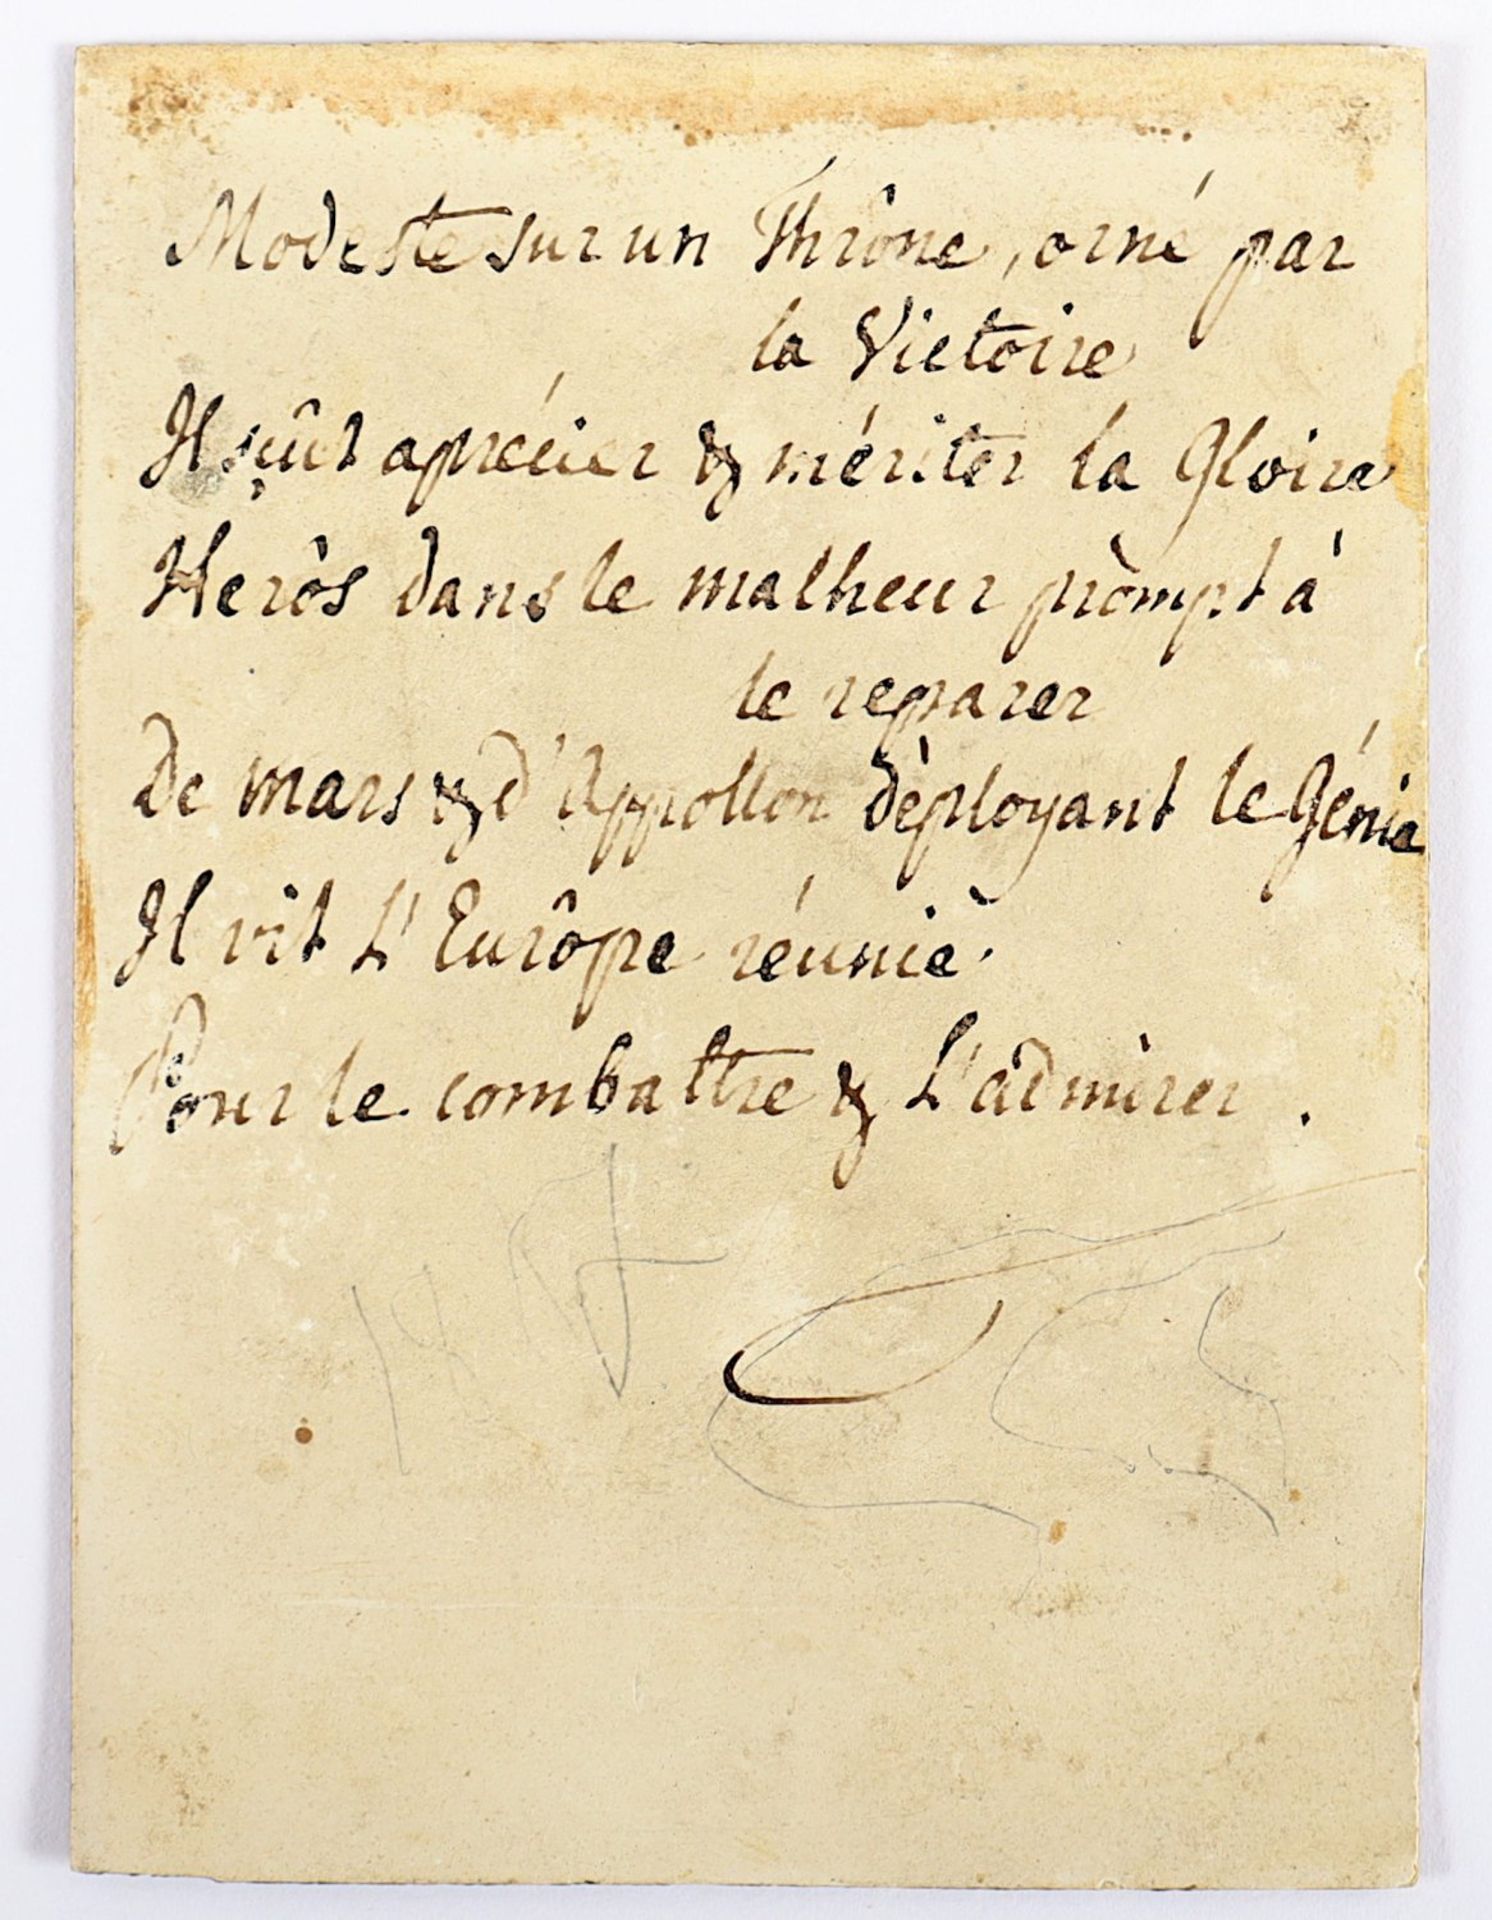 Modeste sur un Thrône, orné par
la Victoire
Il sçût aprécier & mériter la Gloire
Heròs dans le malheur pròmpt à
le reparer
De mars & d'Appollon dèployant le Génie
Il vît L'Eurôpe réuniè
Pour le combattre & L'admirer.